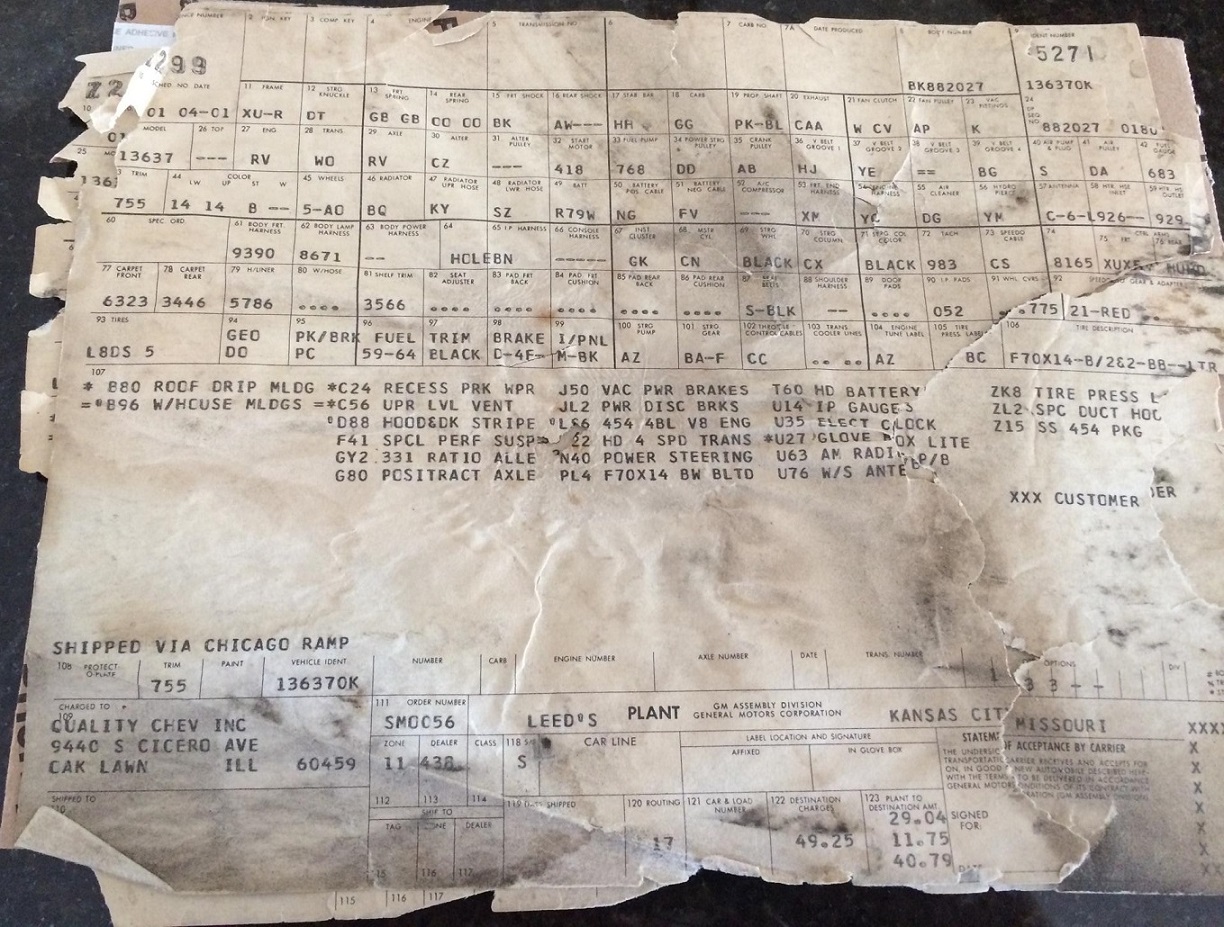 E ADHESIVE
2 PGN. KEY 3 COMP. KEY 4 ENGINE 5 TRANSMISSION NO. 6 7 CARB NO. 7A DATE PRODUCED 8 BODY NUMBER 9 IDENT NUMBER
299 BK882027 5271
136370K
SCHED NO. DATE 11 FRAME 12 STRG KNUCKLE 13 FRT SPRING 14 REAR SPRING 15 FRT SHOCK 16 REAR SHOCK 17 STAB BAR 18 CARB 19 PROP. SHAFT 20 EXHAUST 21 FAN CLUTCH 22 FAN PULLEY 23 VAC FITTINGS 24
01 04-01 XU-R DT GB GB OO OO BK AW--- HR GG PK-BL CAA W CV AP K 882027
25 MODEL 26 TOP 27 ENG 28 TRANS 29 AXLE 30 ALTER 31 ALTER PULLEY 32 START MOTOR 33 FUEL PUMP 34 POWER STRG PULLEY 35 CRANK PULLEY 36 V BELT GROOVE 1 37 V BELT GROOVE 2 38 V BELT GROOVE 3 39 V BELT GROOVE 4 40 AIR PUMP & PLUG 41 AIR PULLEY 42 FUEL GAUGE
13637 --- RV WO RV CZ 418 768 DD AB HJ YE == BG S DA 683
TRIM 44 COLOR LW UP ST W 45 WHEELS 46 RADIATOR 47 RADIATOR UPR HOSE 48 RADIATOR LWR HOSE 49 BATT 50 BATTERY POS. CABLE 51 BATTERY NEG CABLE 52 A/C COMPRESSOR 53 FRT. END HARNESS 54 ENGINE HARNESS 55 AIR CLEANER 56 HYDRO PIERCE 57 ANTENNA 58 HTR. HSE INLET 59 HTR. HSE OUTLET
136 755 14 14 B -- 5-AO BQ KY SZ R79W NG FV ---- XM DG YM C-6-L 926-- 929
60 SPEC. ORD. 61 BODY FRT HARNESS 62 BODY LAMP HARNESS 63 BODY POWER HARNESS 64 65 I.P. HARNESS 66 CONSOLE HARNESS 67 INST CLUSTER 68 MSTR CYL. 69 STRG WHL 70 STRG COLUMN 71 STRG COL COLOR 72 TACH 73 SPEEDO CABLE 74 75 FRT. CTRL ARMS 76 REAR
9390 8671 -- HOLEBN -- GK CN BLACK CX BLACK 983 CS 8165
77 CARPET FRONT 78 CARPET REAR 79 H/LINER 80 W/HOSE 81 SHELF TRIM 82 SEAT ADJUSTER 83 PAD FRT BACK 84 PAD FRT CUSHION 85 PAD REAR BACK 86 PAD REAR CUSHION 87 SEAT BELTS 88 SHOULDER HARNESS 89 DOOR PADS 90 I.P. PADS 91 WHL CVRS 92 SPEEDO GEAR & ADAPTER
6323 3446 5786 3566 S-BLK -- 052 775 21-RED
93 TIRES 94 95 96 97 98 99 100 STRG PUMP 101 STRG GEAR 102 THROTTLE CONTROL CABLES 103 TRANS COOLER LINES 104 ENGINE TUNE LABEL 105 TIRE PRESS LABEL 106 TIRE DESCRIPTION
GEO PK/BRK FUEL TRIM BRAKE I/PNL
L8DS 5 DO PC 59-64 BLACK D-4F- M-BK AZ BA-F CC AZ BC F70X14-B/2&2-BB--LTR
107
* B80 ROOF DRIP MLDG *C24 RECESS PRK WPR J50 VAC PWR BRAKES T60 HD BATTERY ZK8 TIRE PRESS L
=*B96 W/HOUSE MLDGS =*C56 UPR LVL VENT JL2 PWR DISC BRKS U14 IP GAUGES ZL2 SPC DUCT HOO
*D88 HOOD&DK STRIPE *LS6 454 4BL V8 ENG U35 ELECT CLOCK Z15 SS 454 PKG
F41 SPCL PERF SUSP 22 HD 4 SPD TRANS *U27 GLOVE BOX LITE
GY2 331 RATIO ALLE *N40 POWER STEERING U63 AM RADIO P/B
G80 POSITRACT AXLE PL4 F70X14 BW BLTD U76 W/S ANTE
XXX CUSTOMER DER
SHIPPED VIA CHICAGO RAMP
108 PROTECT O-PLATE TRIM PAINT VEHICLE IDENT NUMBER CARB ENGINE NUMBER AXLE NUMBER DATE TRANS. NUMBER OPTIONS DIV
755 136370K 1 3 3 --
CHARGED TO 109 111 ORDER NUMBER
QUALITY CHEV INC SM0056 LEED'S PLANT GM ASSEMBLY DIVISION GENERAL MOTORS CORPORATION KANSAS CITY MISSOURI XXXX
9440 S CICERO AVE ZONE DEALER CLASS 118 CAR LINE LABEL LOCATION AND SIGNATURE STATEMENT OF ACCEPTANCE BY CARRIER X
OAK LAWN ILL 60459 11 438 S AFFIXED IN GLOVE BOX
SHIPPED TO 110 112 113 114 SHIP TO 119 DATE SHIPPED 120 ROUTING 121 CAR & LOAD NUMBER 122 DESTINATION CHARGES 123 PLANT TO DESTINATION AMT.
TAG ZONE DEALER 17 49.25 29.04 SIGNED FOR:
11.75
40.79
115 116 117
115 116 117